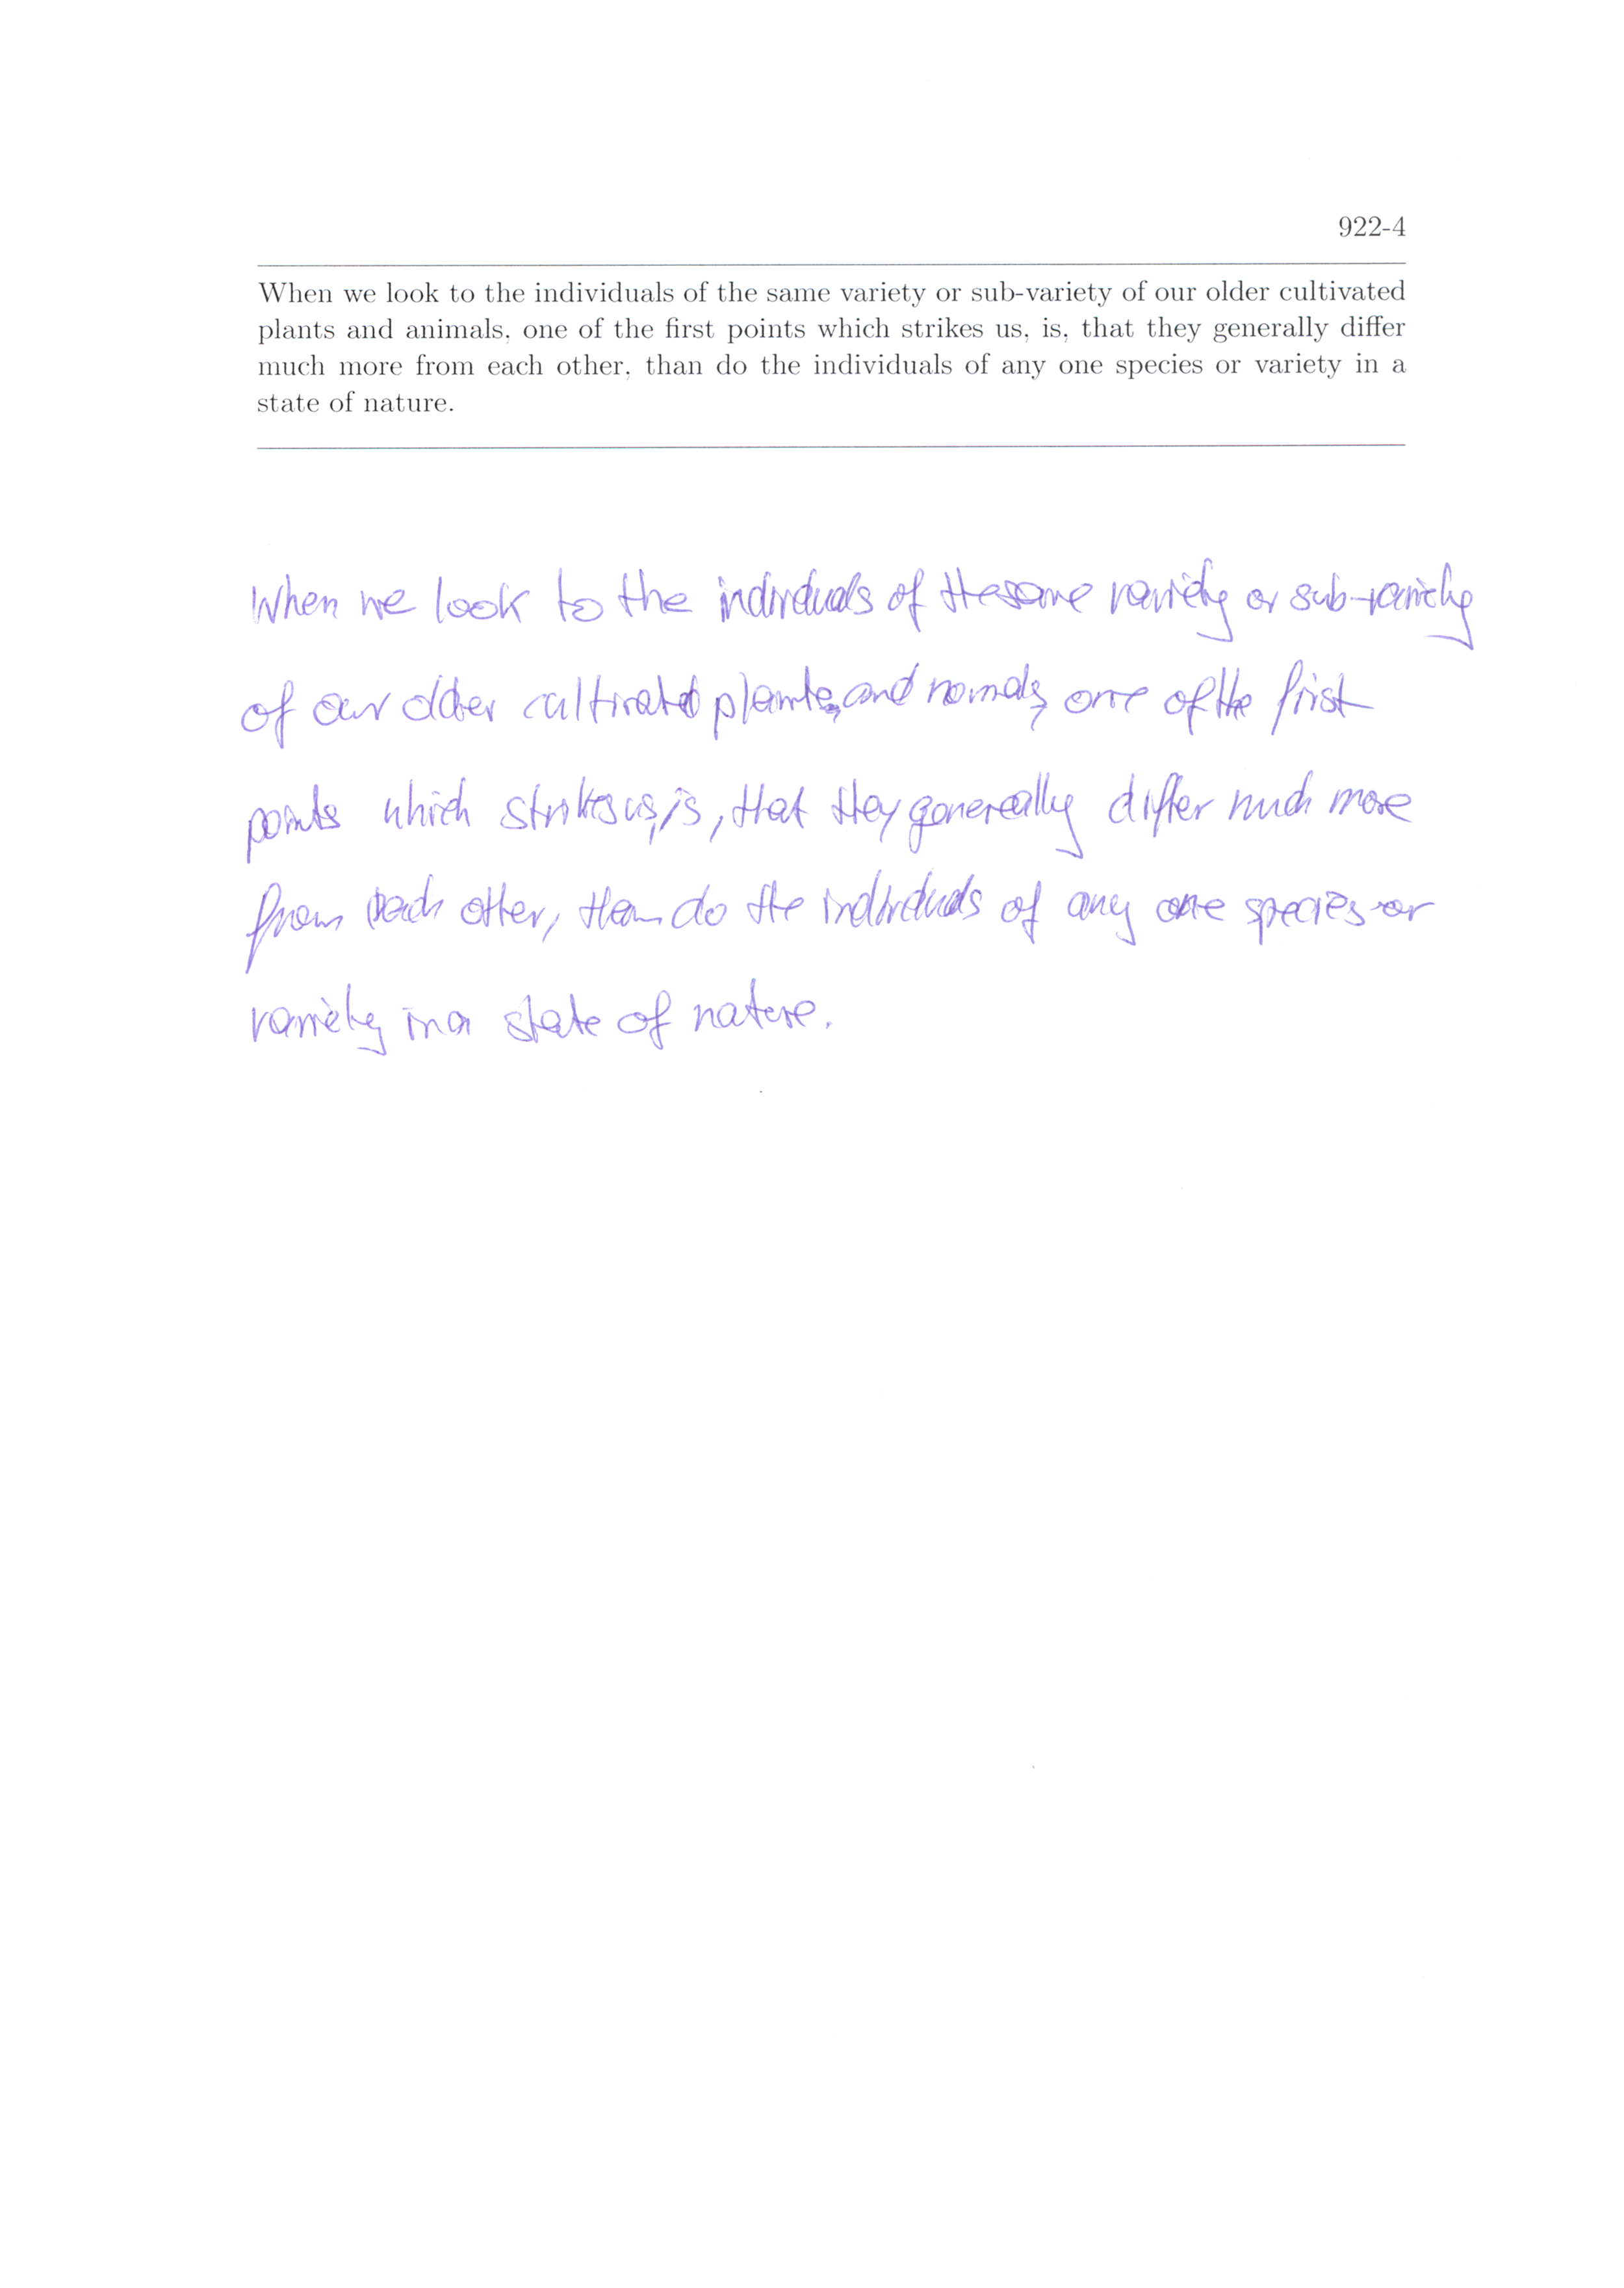 922-4
When we look to the individuals of the same variety or sub-variety of our older cultivated
plants and animals, one of the first points which strikes us, is, that they generally differ
much more from each other, than do the individuals of any one species or variety in a
state of nature.
When we look to the individuals of the same variety or sub-variety
of our older cultivated plants, and nomals, one of the first
points which strikes us, is, that they genereally differ much more
from each other, than do the individuals of any one species or
variety in a state of nature.